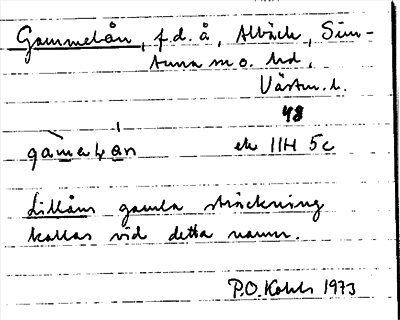 Gammelån, f.d. å, Albäck, Sim-
tuna sn o. hd,
Västm. l.
48
ek 11H 5c
Lillåns gamla sträckning
kallas vid detta namn.
P.O. 1973